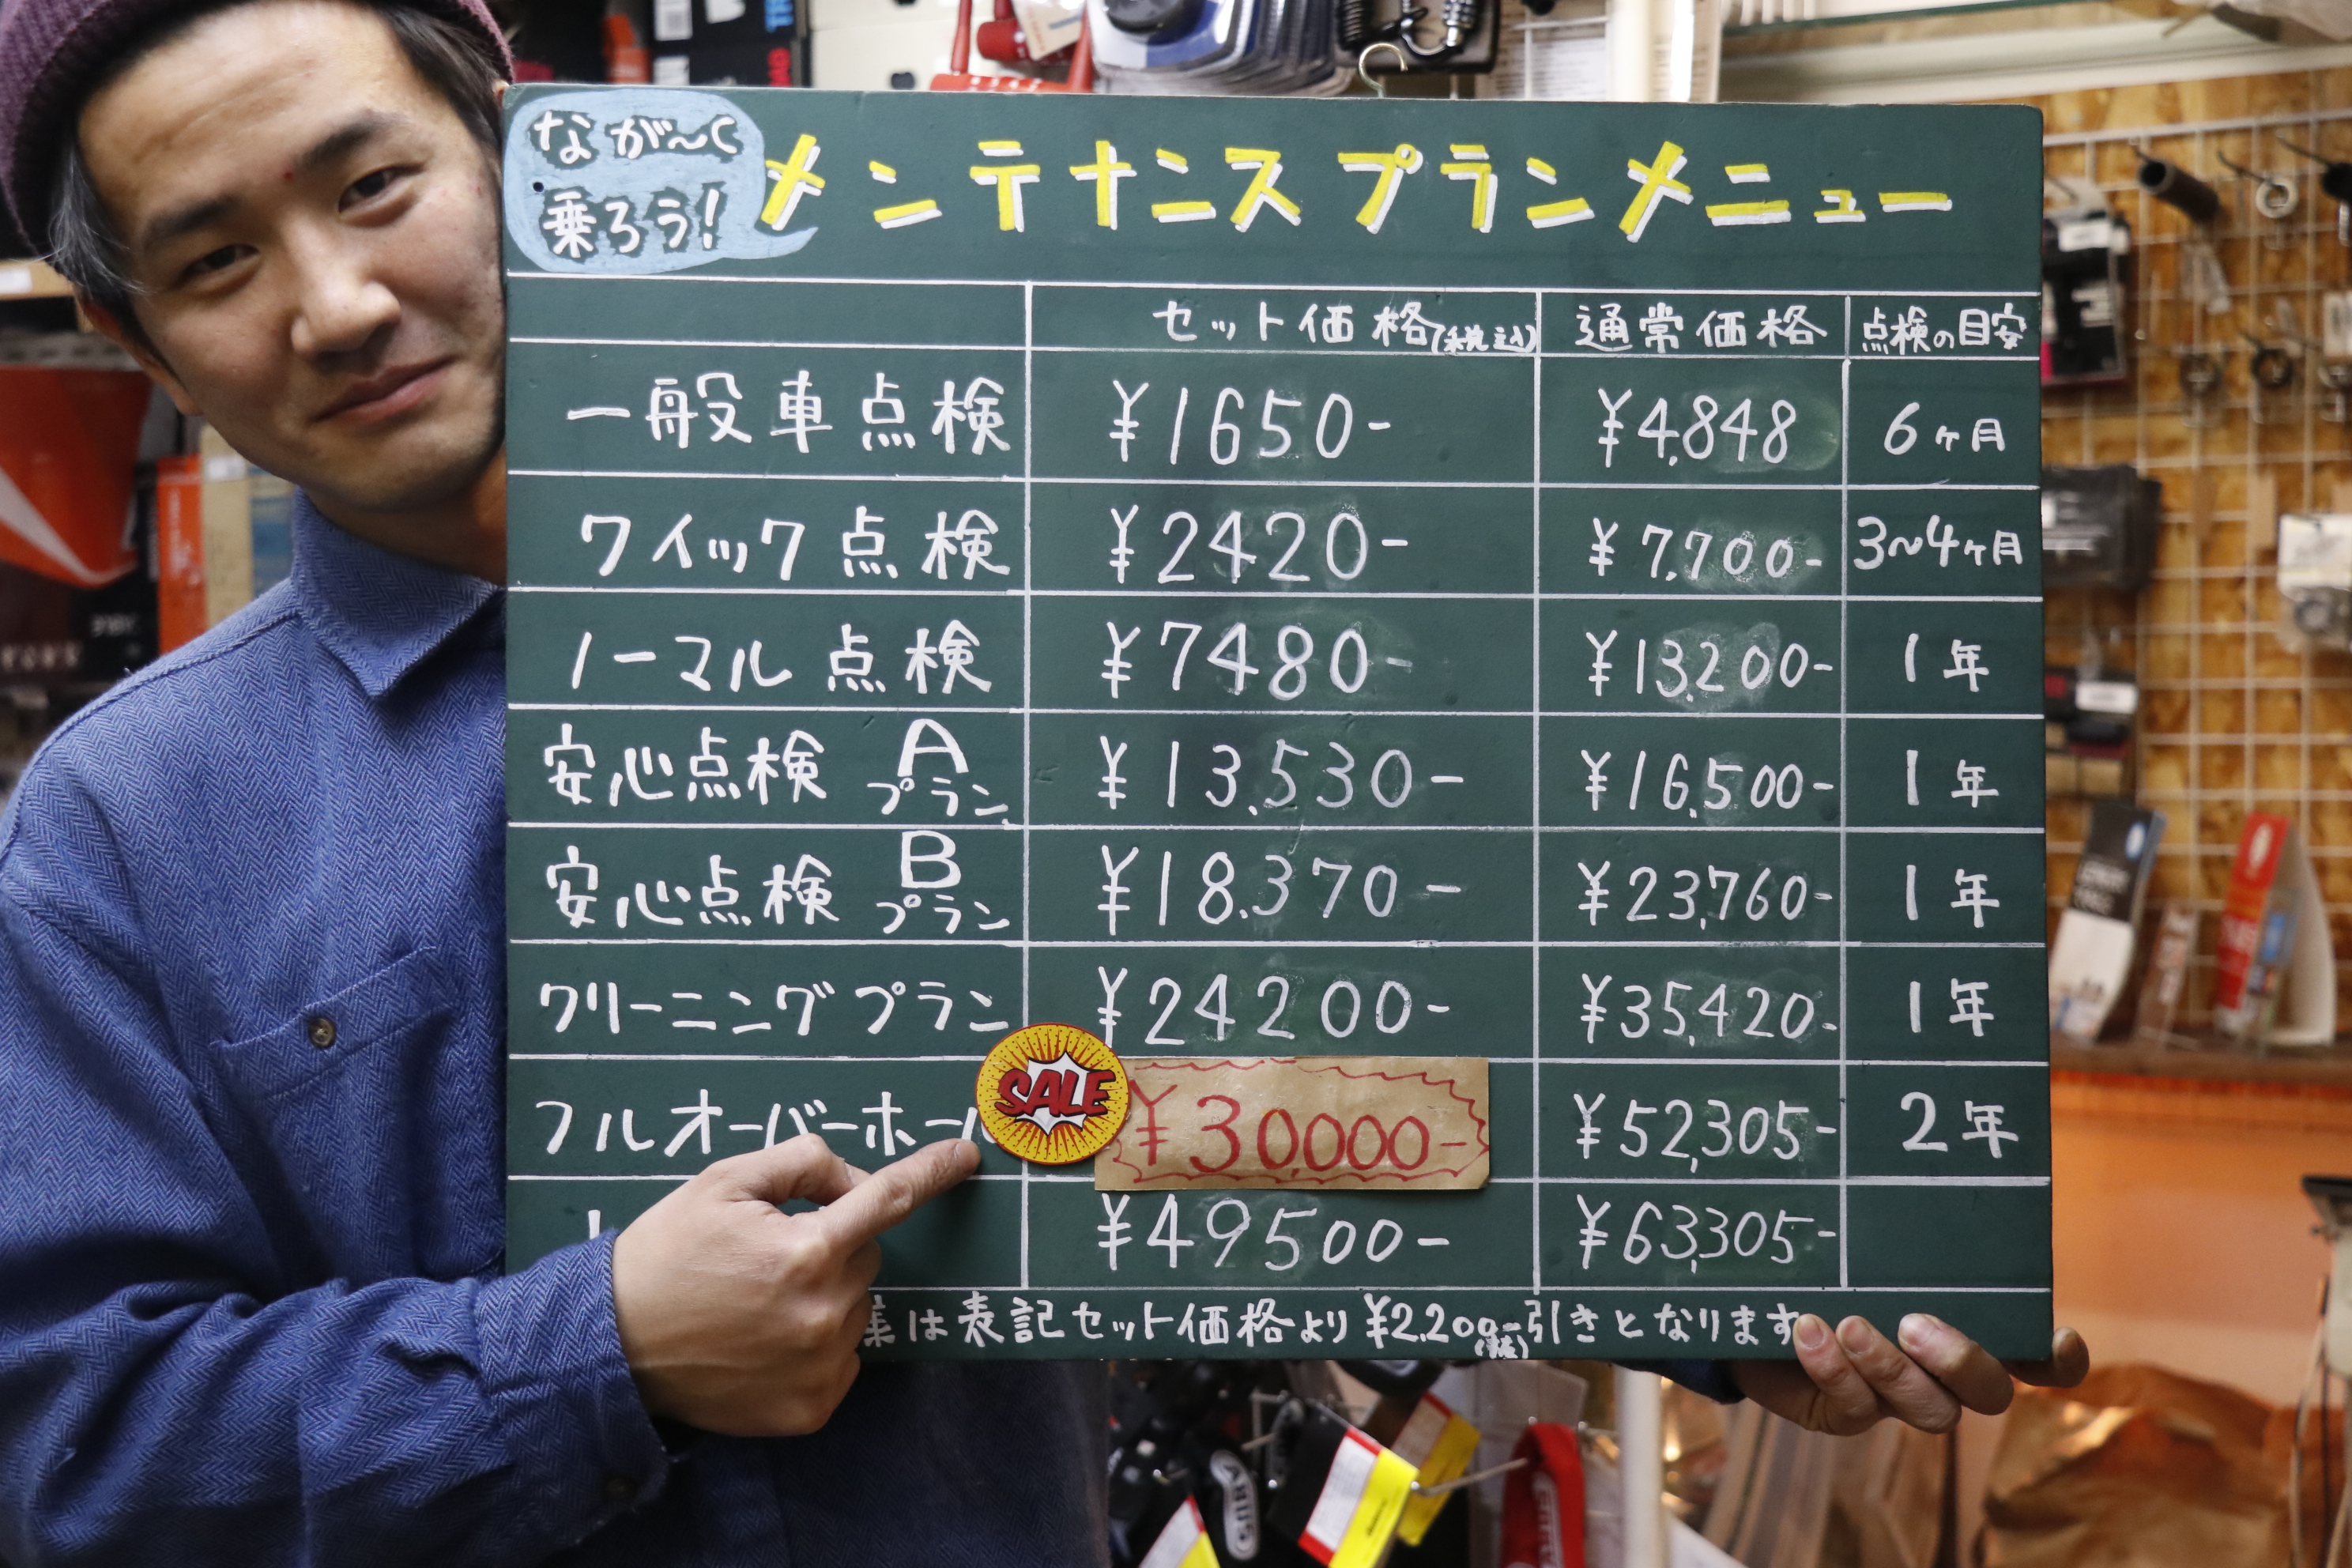 なが〜く
乗ろう!
メンテナンスプランメニュー
セット価格(税込) 通常価格 点検の目安
一般車点検 ¥1650- ¥4,848 6ヶ月
クイック点検 ¥2420- ¥7,700- 3〜4ヶ月
ノーマル点検 ¥7480- ¥13,200- 1年
安心点検 Aプラン ¥13,530- ¥16,500- 1年
安心点検 Bプラン ¥18,370- ¥23,760- 1年
クリーニングプラン ¥24200- ¥35,420- 1年
フルオーバーホール SALE ¥30,000- ¥52,305- 2年
¥49500- ¥63,305-
業は表記セット価格より¥2,200-引きとなります